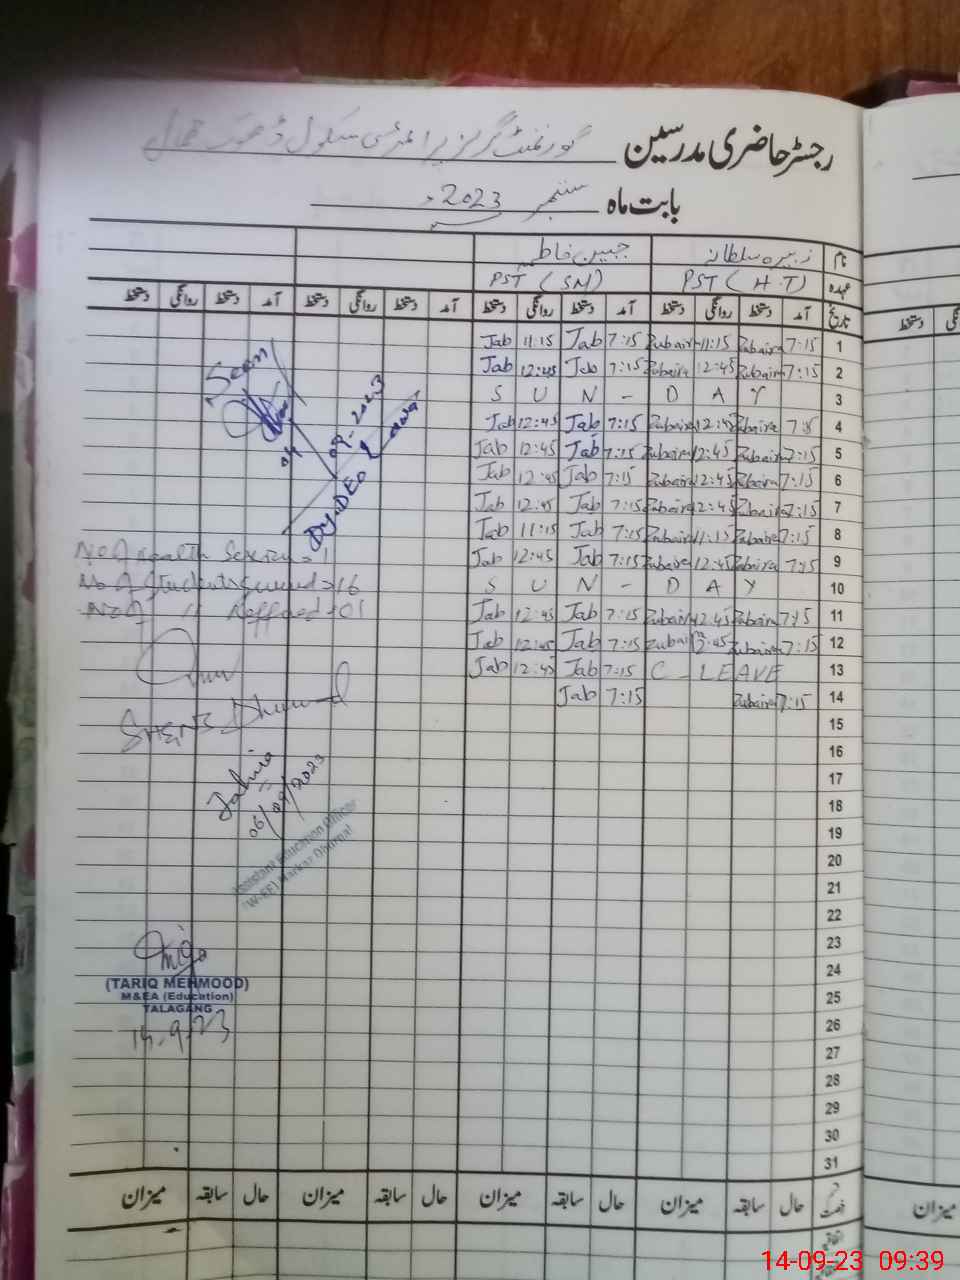 رجسٹر حاضری مدرسین گورنمنٹ گرلز پرائمری سکول ڈھوک
بابت ماہ ستمبر 2023ء
نام زبیرہ سلطانہ جبین فاطمہ
عہدہ PST (H.T) PST (SN)
تاریخ آمد دستخط روانگی دستخط آمد دستخط روانگی دستخط آمد دستخط روانگی دستخط آمد دستخط روانگی دستخط
Jab 11:15 Jab 7:15 Zubaira 11:15 Zubaira 7:15 1
Jab 12:45 Jab 7:15 Zubaira 12:45 Zubaira 7:15 2
S U N - D A Y 3
Jab 12:45 Jab 7:15 Zubaira 12:45 Zubaira 7:15 4
Jab 12:45 Jab 7:15 Zubaira 12:45 Zubaira 7:15 5
Jab 12:45 Jab 7:15 Zubaira 12:45 Zubaira 7:15 6
Jab 12:45 Jab 7:15 Zubaira 12:45 Zubaira 7:15 7
Jab 11:15 Jab 7:15 Zubaira 11:15 Zubaira 7:15 8
Jab 12:45 Jab 7:15 Zubaira 12:45 Zubaira 7:15 9
S U N - D A Y 10
Jab 12:45 Jab 7:15 Zubaira 12:45 Zubaira 7:15 11
Jab 12:45 Jab 7:15 Zubaira 12:45 Zubaira 7:15 12
Jab 12:45 Jab 7:15 C - LEAVE 13
Jab 7:15 Zubaira 7:15 14
15
16
17
18
19
20
21
22
23
24
25
26
27
28
29
30
31
Seen
09-2023
DY.DEO Lawa
No of Health = 1
No of Students = 16
No of " Reffered = 01
SH&NS Dhurnal
06/09/2023
Assistant Education Officer
(W-EE) Markaz Dhurnal
(TARIQ MEHMOOD)
M&EA (Education)
TALAGANG
14-9-23
حال سابقہ میزان حال سابقہ میزان حال سابقہ میزان حال سابقہ میزان
دستخط
میزان
14-09-23 09:39